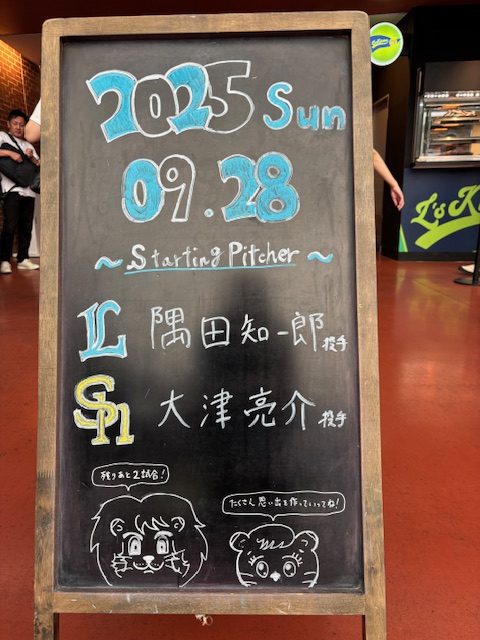 2025 Sun
09.28
~ Starting Pitcher ~
L 隅田知一郎 投手
SH 大津亮介 投手
残りあと2試合!
たくさん思い出を作っていってね!
L's K